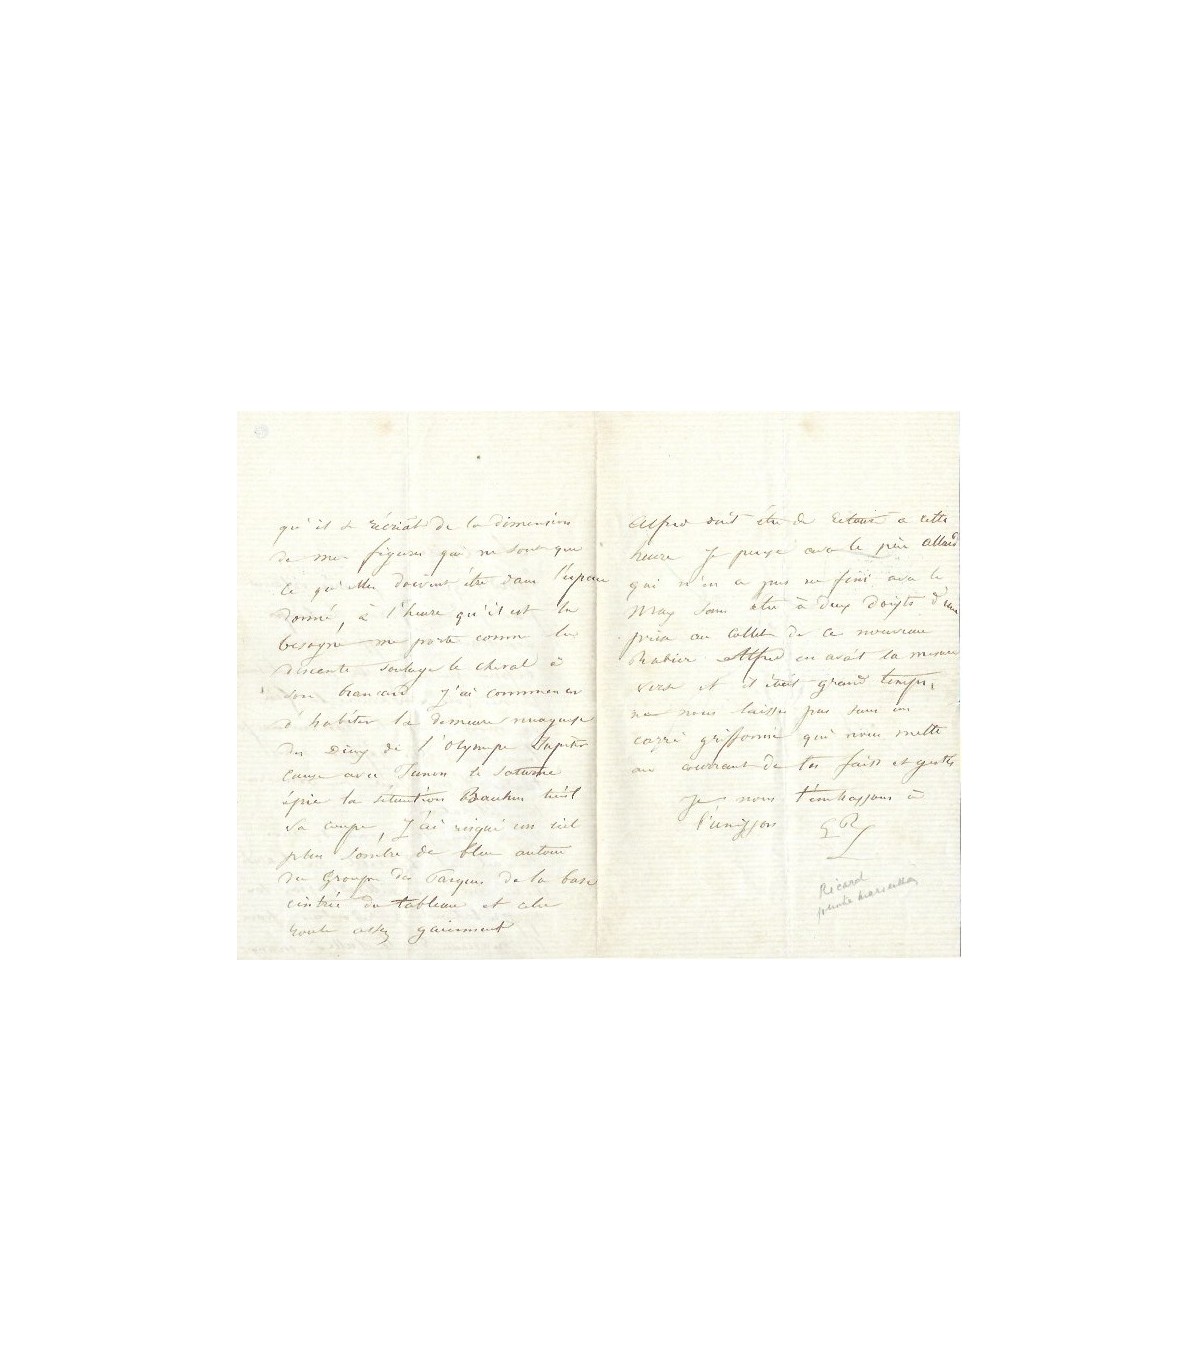 qu'il se récriât de la dimension
de mes figures qui ne sont que
ce qu'elles doivent être dans l'espace
donné, à l'heure qu'il est la
besogne me porte comme la
descente soulage le cheval à
son brancard J'ai commencé
d'habiter la demeure nuageuse
des Dieux de l'Olympe Jupiter
cause avec Junon le Saturne
épie la situation Bacchus tient
sa coupe, J'ai risqué un ciel
plus sombre de bleu autour
du Groupe des Parques de la base
cintrée du tableau et cela
roule assez gaiement
Alfred doit être de retour a cette
heure Je pense avec le père Allard
qui n'en a pas fini avec le
sans être à deux doigts d'une
prise au collet de ce nouveau
Alfred en avait la mesure
et il était grand temps,
ne nous laisse pas sans un
carré griffonné qui nous mette
au courant de tes faits et gestes
Je nous t'embrassons à
l'unisson GR
Ricard
peintre marseillais